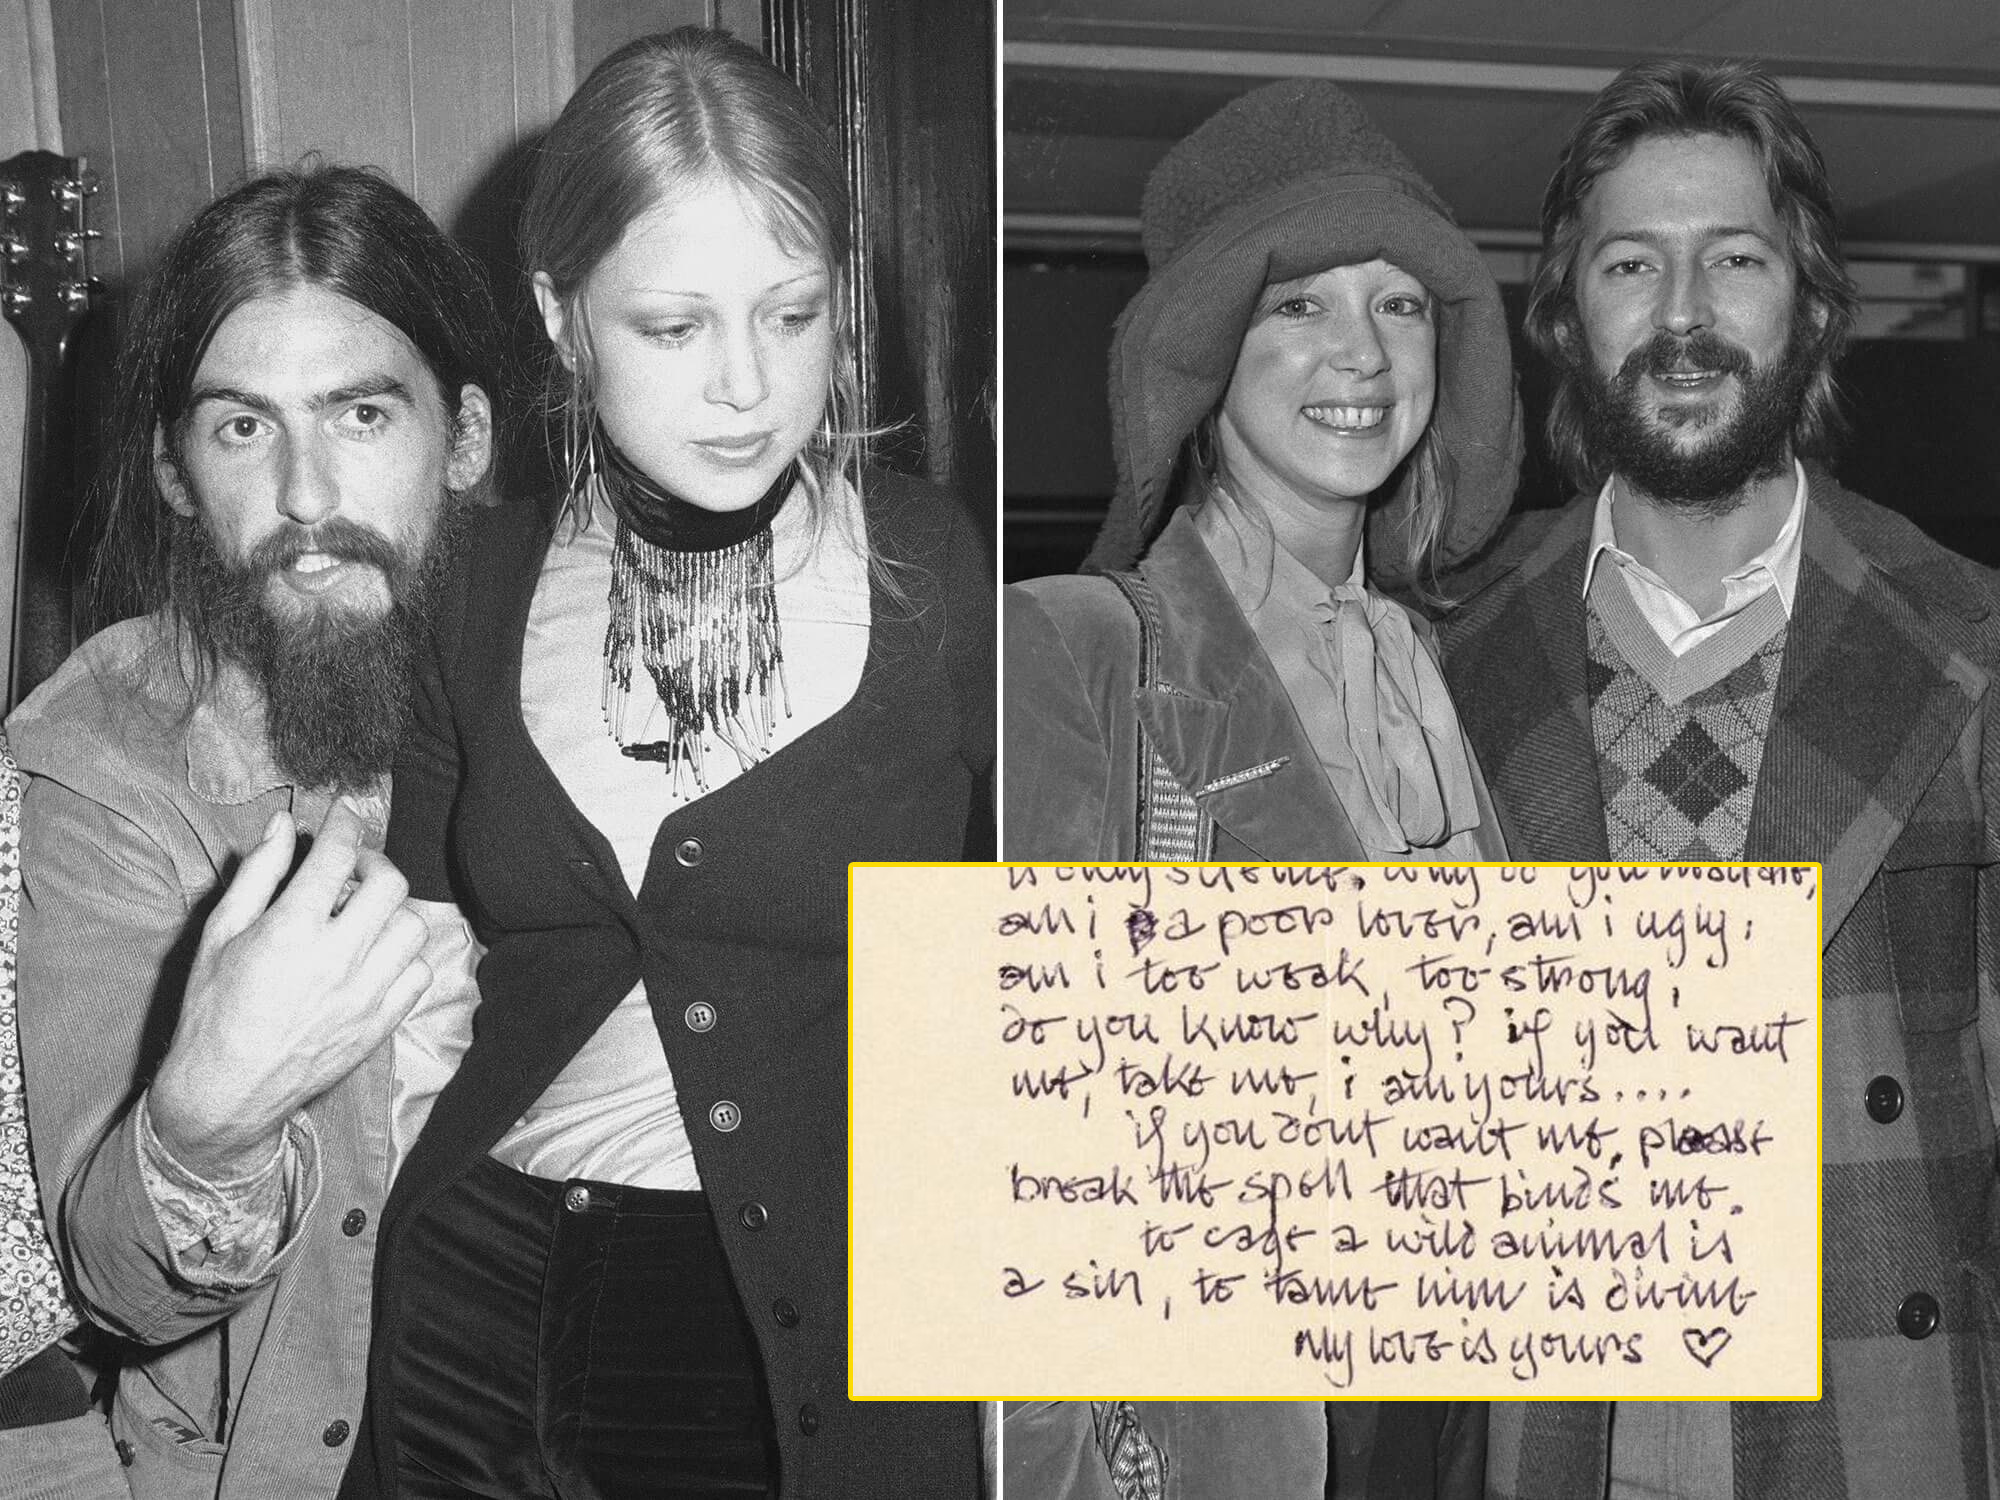 is only scheme, why do you hesitate,
am i a poor lover, am i ugly;
am i too weak, too strong,
do you know why? if you want
me, take me, i am yours....
if you dont want me, please
break the spell that binds me.
to cage a wild animal is
a sin, to tame him is divine
My love is yours ♡